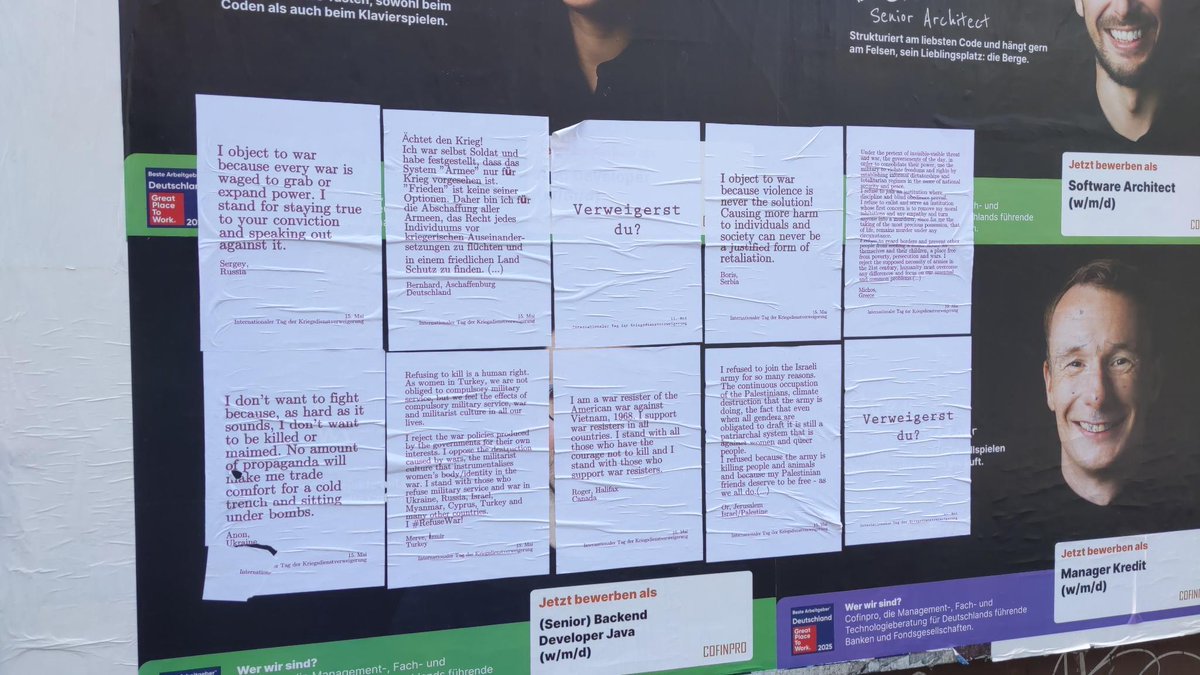 Coden als auch beim Klavierspielen.
Senior Architect
Strukturiert am liebsten Code und hängt gern
am Felsen, sein Lieblingsplatz: die Berge.
Beste Arbeitgeber
Deutschland
Great
Place
To
Work.
2025
Jetzt bewerben als
Software Architect
(w/m/d)
I object to war
because every war is
waged to grab or
expand power. I
stand for staying true
to your conviction
and speaking out
against it.
Sergey,
Russia
15. Mai
Internationaler Tag der Kriegsdienstverweigerung
Ächtet den Krieg!
Ich war selbst Soldat und
habe festgestellt, dass das
System "Armee" nur für
Krieg vorgesehen ist.
"Frieden" ist keine seiner
Optionen. Daher bin ich für
die Abschaffung aller
Armeen, das Recht jedes
Individuums vor
kriegerischen Auseinander-
setzungen zu flüchten und
in einem friedlichen Land
Schutz zu finden. (...)
Bernhard, Aschaffenburg
Deutschland
15. Mai
Internationaler Tag der Kriegsdienstverweigerung
Verweigerst
du?
15. Mai
Internationaler Tag der Kriegsdienstverweigerung
I object to war
because violence is
never the solution!
Causing more harm
to individuals and
society can never be
a justified form of
retaliation.
Boris,
Serbia
15. Mai
Internationaler Tag der Kriegsdienstverweigerung
Under the pretext of invisible-visible threat
and war, the governments of the day, in
order to consolidate their power, use the
military to violate freedoms and rights by
establishing informal dictatorships and
totalitarian regimes in the name of national
security and peace.
I refuse to join an institution where
discipline and blind obedience prevail.
I refuse to enlist and serve an institution
whose first concern is to remove my moral
and any empathy and turn
anyone into a murderer
taking of the most precious possession, that
of life, remains murder under any
circumstance.
I refuse to guard borders and prevent other
people from seeking
themselves and their children, a place free
from poverty, persecution and wars. I
reject the supposed necessity of armies in
the 21st century, humanity must overcome
any differences and focus on our essential
and common problems (...)
Michos,
Greece
15. Mai
Internationaler Tag der Kriegsdienstverweigerung
I don't want to fight
because, as hard as it
sounds, I don't want
to be killed or
maimed. No amount
of propaganda will
make me trade
comfort for a cold
trench and sitting
under bombs.
Anon,
Ukraine
15. Mai
Tag der Kriegsdienstverweigerung
Refusing to kill is a human right.
As women in Turkey, we are not
obliged to compulsory military
service, but we feel the effects of
compulsory military service, war
and militarist culture in all our
lives.
I reject the war policies produced
by the governments for their own
interests. I oppose the destruction
caused by wars, the militarist
culture that instrumentalises
women's body/identity in the
war. I stand with those who
refuse military service and war in
Ukraine, Russia, Israel,
Myanmar, Cyprus, Turkey and
many other countries.
I #RefuseWar!
Merve, Izmir
Turkey
15. Mai
Internationaler Tag der Kriegsdienstverweigerung
I am a war resister of the
American war against
Vietnam, 1968. I support
war resisters in all
countries. I stand with all
those who have the
courage not to kill and I
stand with those who
support war resisters.
Roger, Halifax
Canada
15. Mai
Internationaler Tag der Kriegsdienstverweigerung
I refused to join the Israeli
army for so many reasons.
The continuous occupation
of the Palestinians, climate
destruction that the army is
doing, the fact that even
when all genders are
obligated to draft it is still a
patriarchal system that is
against women and queer
people.
I refused because the army is
killing people and animals
and because my Palestinian
friends deserve to be free - as
we all do (...)
Or, Jerusalem
Israel/Palestine
15. Mai
Internationaler Tag der Kriegsdienstverweigerung
Verweigerst
du?
15. Mai
Internationaler Tag der Kriegsdienstverweigerung
Jetzt bewerben als
(Senior) Backend
Developer Java
(w/m/d)
COFINPRO
Jetzt bewerben als
Manager Kredit
(w/m/d)
Beste Arbeitgeber
Deutschland
Great
Place
To
Work.
2025
Wer wir sind?
Cofinpro, die Management-, Fach- und
Technologieberatung für Deutschlands führende
Banken und Fondsgesellschaften.
Wer wir sind?
Management-, Fach- und